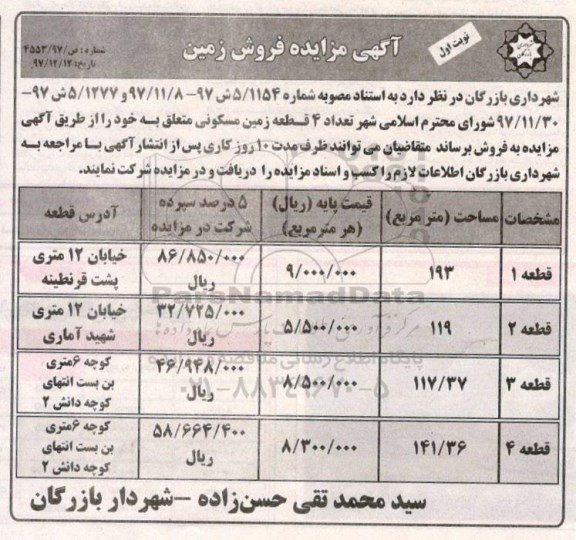 آگهی مزایده فروش زمین
نوبت اول
شماره: ص/۴۵۵۳/۹۷
تاریخ: ۹۷/۱۲/۱۴
شهرداری بازرگان در نظر دارد به استناد مصوبه شماره ۵/۱۱۵۴ش ۹۷–۹۷/۱۱/۸ و ۵/۱۲۷۷ش ۹۷–
۹۷/۱۱/۳۰ شورای محترم اسلامی شهر تعداد ۴ قطعه زمین مسکونی متعلق به خود را از طریق آگهی
مزایده به فروش برساند متقاضیان می توانند ظرف مدت ۱۰ روز کاری پس از انتشار آگهی با مراجعه به
شهرداری بازرگان اطلاعات لازم را کسب و اسناد مزایده را دریافت و در مزایده شرکت نمایند.
مشخصات
مساحت (متر مربع)
قیمت پایه (ریال)
(هر مترمربع)
۵ درصد سپرده
شرکت در مزایده
آدرس قطعه
قطعه ۱
۱۹۳
۹/۰۰۰/۰۰۰
۸۶/۸۵۰/۰۰۰
ریال
خیابان ۱۲ متری
پشت قرنطینه
قطعه ۲
۱۱۹
۵/۵۰۰/۰۰۰
۳۲/۷۲۵/۰۰۰
ریال
خیابان ۱۲ متری
شهید آماری
قطعه ۳
۱۱۷/۳۷
۸/۵۰۰/۰۰۰
۴۶/۹۴۸/۰۰۰
ریال
کوچه ۶متری
بن بست انتهای
کوچه دانش ۲
قطعه ۴
۱۴۱/۳۶
۸/۳۰۰/۰۰۰
۵۸/۶۶۴/۴۰۰
ریال
کوچه ۶متری
بن بست انتهای
کوچه دانش ۲
سید محمد تقی حسن‌زاده –شهردار بازرگان
ParsNamadData
پایگاه اطلاع رسانی مناقصه و مزایده
۰۲۱-۸۸۳۴۹۶۷۰-۵